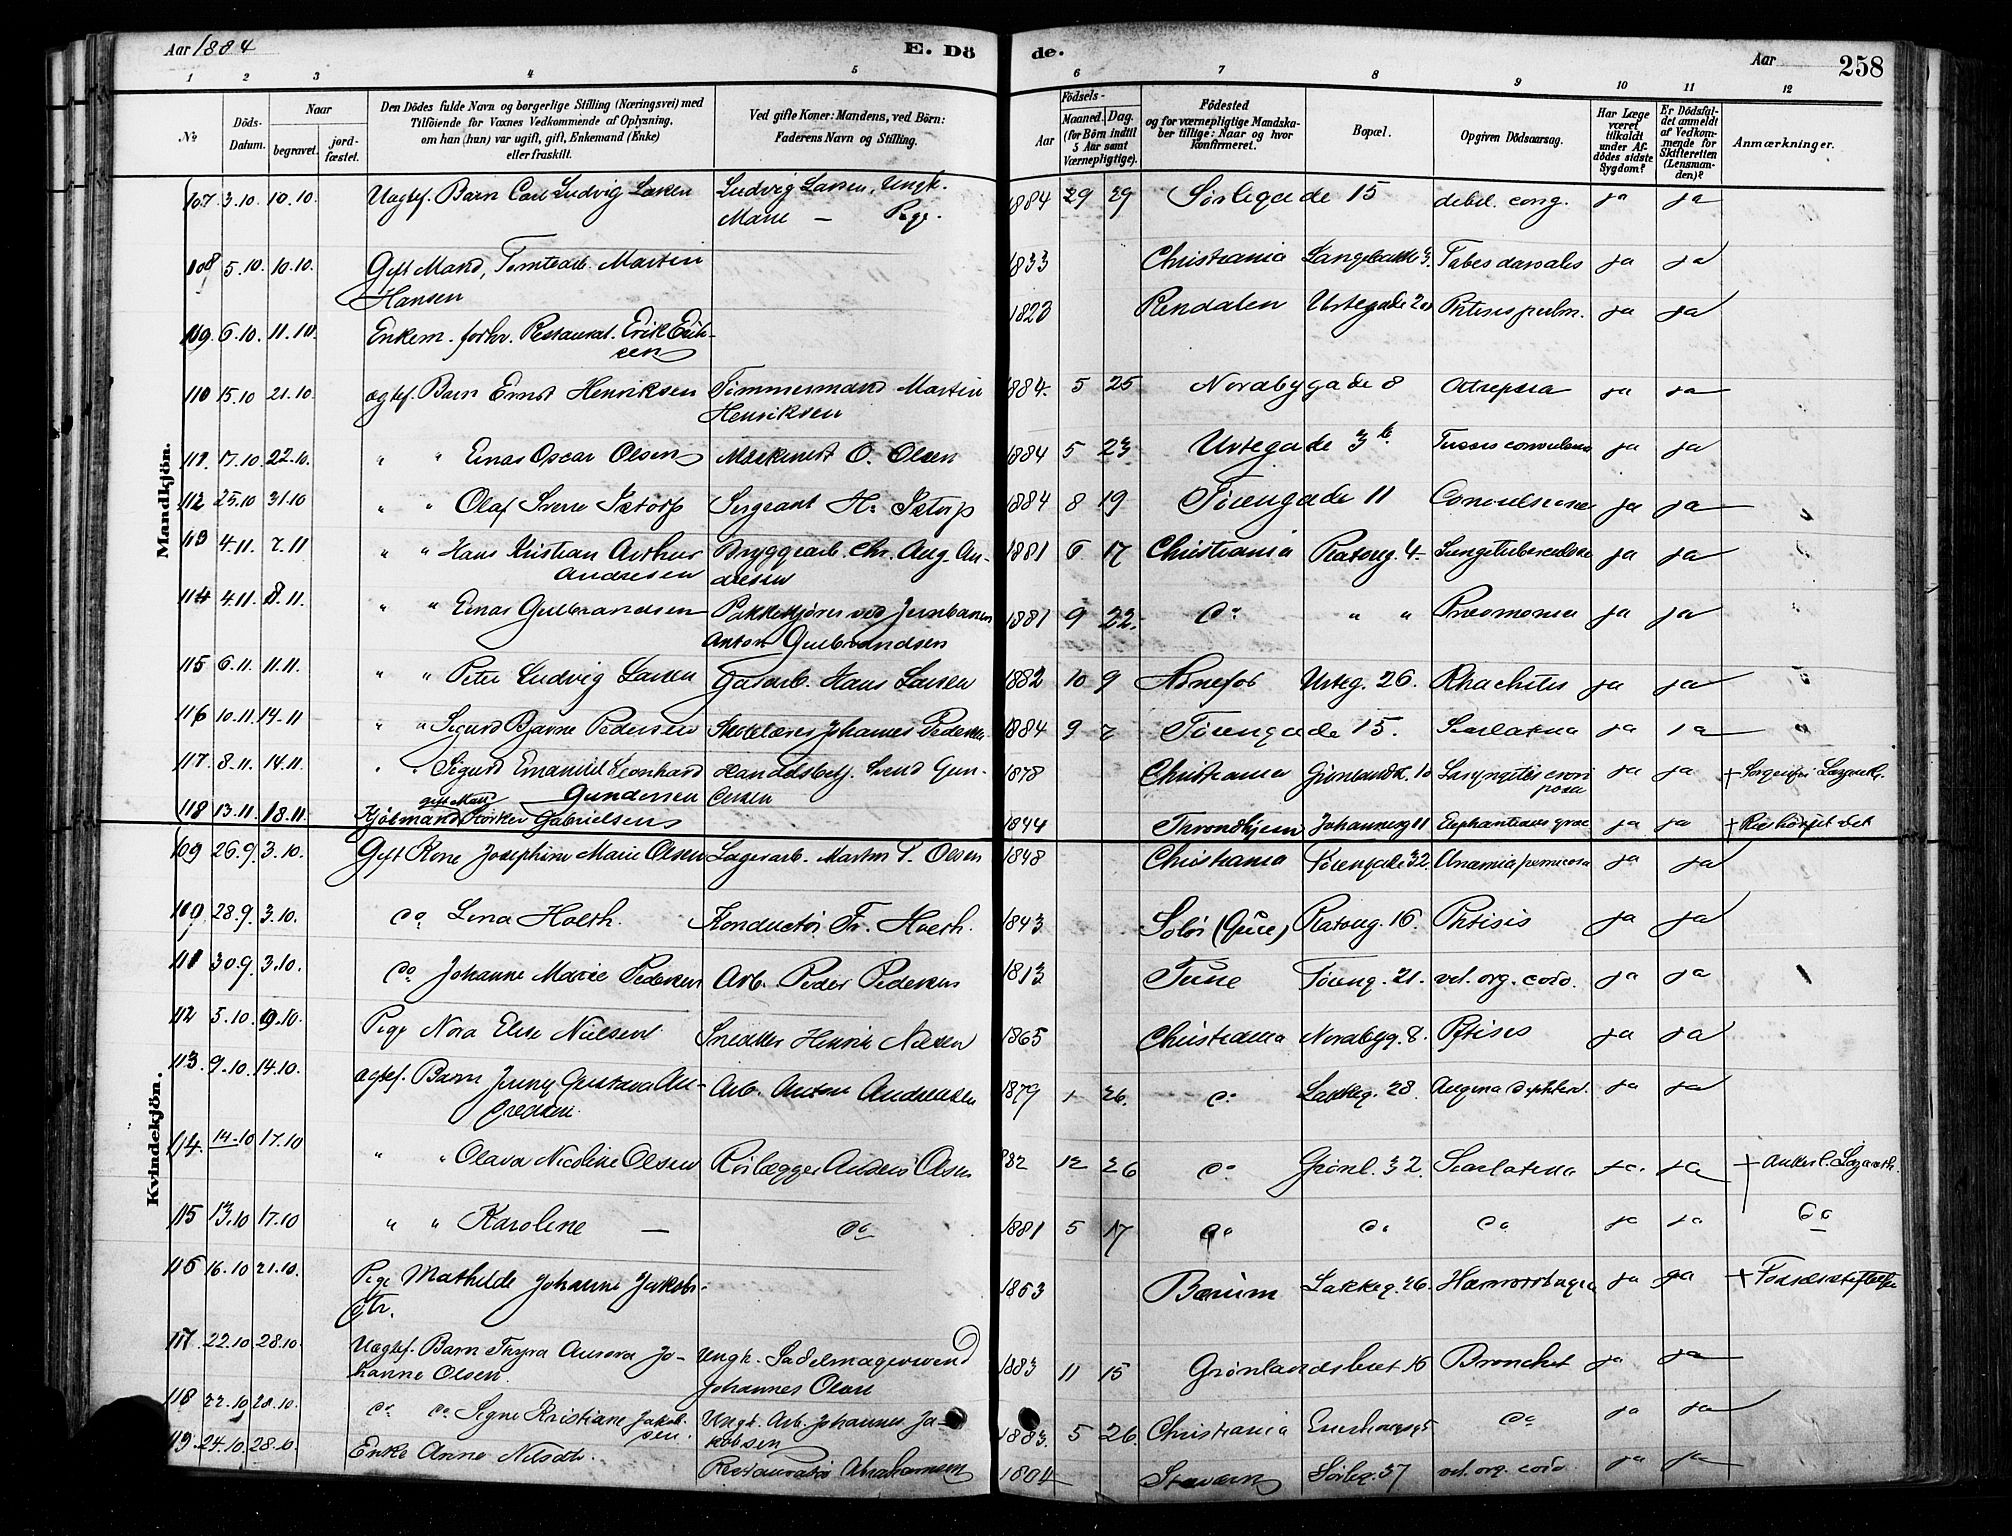 Aar 1884
E. Dö
de.
Aar
258
1 2 3 4 5 6 7 8 9 10 11 12
No
Döds-Datum.
Naar
begravet.
jord-fæstet.
Den Dödes fulde Navn og borgerlige Stilling (Næringsvei) med
Tilföiende for Voxnes Vedkommende af Oplysning,
om han (hun) var ugift, gift, Enkemand (Enke)
eller fraskilt.
Ved gifte Koner: Mandens, ved Börn:
Faderens Navn og Stilling.
Födsels-
Aar
Maaned. Dag.
(for Börn indtil
5 Aar samt
Værnepligtige).
Födested
og for værnepligtige Mandska-
ber tillige: Naar og hvor
Konfirmeret.
Bopæl.
Opgiven Dödsaarsag.
Har Læge
været
tilkaldt
under Af-
dödes sidste
Sygdom?
Er Dödsfal-
det anmeldt
af Vedkom-
mende for
Skifteretten
(Lensman-
den)?
Anmærkninger.
Mandkjön.
107 3.10 10.10. Uægtef. Barn Carl Ludvig Larsen Ludvig Larsen, Ungk. 1884 29 29 Sörlegade 15 debil. cong. ja ja
Marie — Pige
108 5.10. 10.10. Gift Mand, Tomtearb. Martin 1833 Christiania Tabes dorsalis ja ja
Hansen
109 6.10. 11.10. Enkem. forhv. Restaurat. Erik Erik- 1823 Rendalen Urtegade Phtisis pulm. ja ja
sen
110 15.10 21.10. ægtef. Barn Ernst Henriksen Tömmermand Martin 1884. 5 25 Nordbygade 8 Atrepsia ja ja
Henriksen
111. 17.10 22.10. " " Einar Oscar Olsen Maskinist O. Olsen 1884 5 23 Urtegade 3 b. Tussis convulsiva ja ja
112 25.10 31.10 " " Olaf Sverre Istorp Sergeant H. Istorp 1884 8 19 Töiengade 11 Convulsiones ja ja
113 4.11. 7.11 " " Hans Kristian Arthur Bryggearb. Chr. Aug. An- 1881 6 17 Christiania Platoug. 4. Lungetuberculose ja ja
Andresen dresen
114 4.11. 8.11. " " Einar Gulbrandsen Pakkekjører ved Jernbanen 1881 9 22. do " " Pneomonia ja ja
Anton Gulbrandsen
115 6.11. 11.11. " " Peter Ludvig Larsen Gasarb. Hans Larsen 1882 10 9 Urteg. 26. Rhachitis ja ja
116 10.11. 14.11 " " Sigurd Bjarne Pedersen Skolelærer Johannes Pedersen 1884 9 7 Töiengade 15. Scarlatina ja ja
117. 8.11. 14.11. " " Sigurd Emanuel Leonhard Handelsbetj. Svend Gun- 1878 Christiania Grønlandsl. 10 Laryngitis crou ja ja + Sorgenfri Lazareth.
Gundersen dersen posa
gift Mand
118 13.11. 18.11. Kjøbmand Størker Gabrielsen 1844 Throndhjem Johannesg 11 Elephantiasis græc ja ja + Rigshospitalet
Kvindekjön.
109 26.9. 3.10. Gift Kone Josephine Marie Olsen Lagerarb. Martin P. Olsen 1848 Christiania Töiengade 32. Anæmia perniciosa ja ja
110. 28.9. 3.10. do Lina Hoeth. Konductör Fr. Hoeth. 1843 Solör (Grue) Platoug. 16. Phtisis ja ja
111 30.9. 3.10. do Johanne Marie Pedersen Arb. Peder Pedersen 1813 Tune Töieng. 21. vit. org. cord. ja ja
112 5.10. 9.10. Pige Nora Elise Nielsen Snedker Henrik Nielsen 1865 Christiania Nordbyg. 8. Ptisis ja ja
113. 9.10. 14.10. ægtef. Barn Jenny Gustava An- Arb. Anton Andreasen 1879 1 26. do Lakkeg. 28. Angina diphther. ja ja
dreasen.
114. 14.10 17.10 " " Olava Nicoline Olsen Rörlægger Anders Olsen 882 12 26 do Grønl. 32. Scarlatina ja. ja + Ankerl. Lazareth.
115 13.10 17.10 " " Karoline — do 1881 5 17 do do do ja ja do
116 16.10 21.10. Pige Mathilde Johanne Jakobs- 1863 Bærum Lakkeg. 26. Hæmorrhagia ja ja + Födselsstiftelsen
dtr.
117 22.10 28.10. Uægtef. Barn Thyra Aurora Jo- Ungk. Sadelmagersvend 1883 11 15 Grønlandsleret 15 Bronchit ja ja
hanne Olsen. Johannes Olsen
118 22.10 28.10. do do Signe Kristiane Jakob- Ungk. Arb. Johannes Ja- 1883. 5 26. Christiania do ja ja
sen. kobsen
119 24.10. 28.10. Enke Anne Nilsdtr. Restauratör Abrahamsen 1804 Stavern Sörleg. 37 vit. org. cord. ja ja